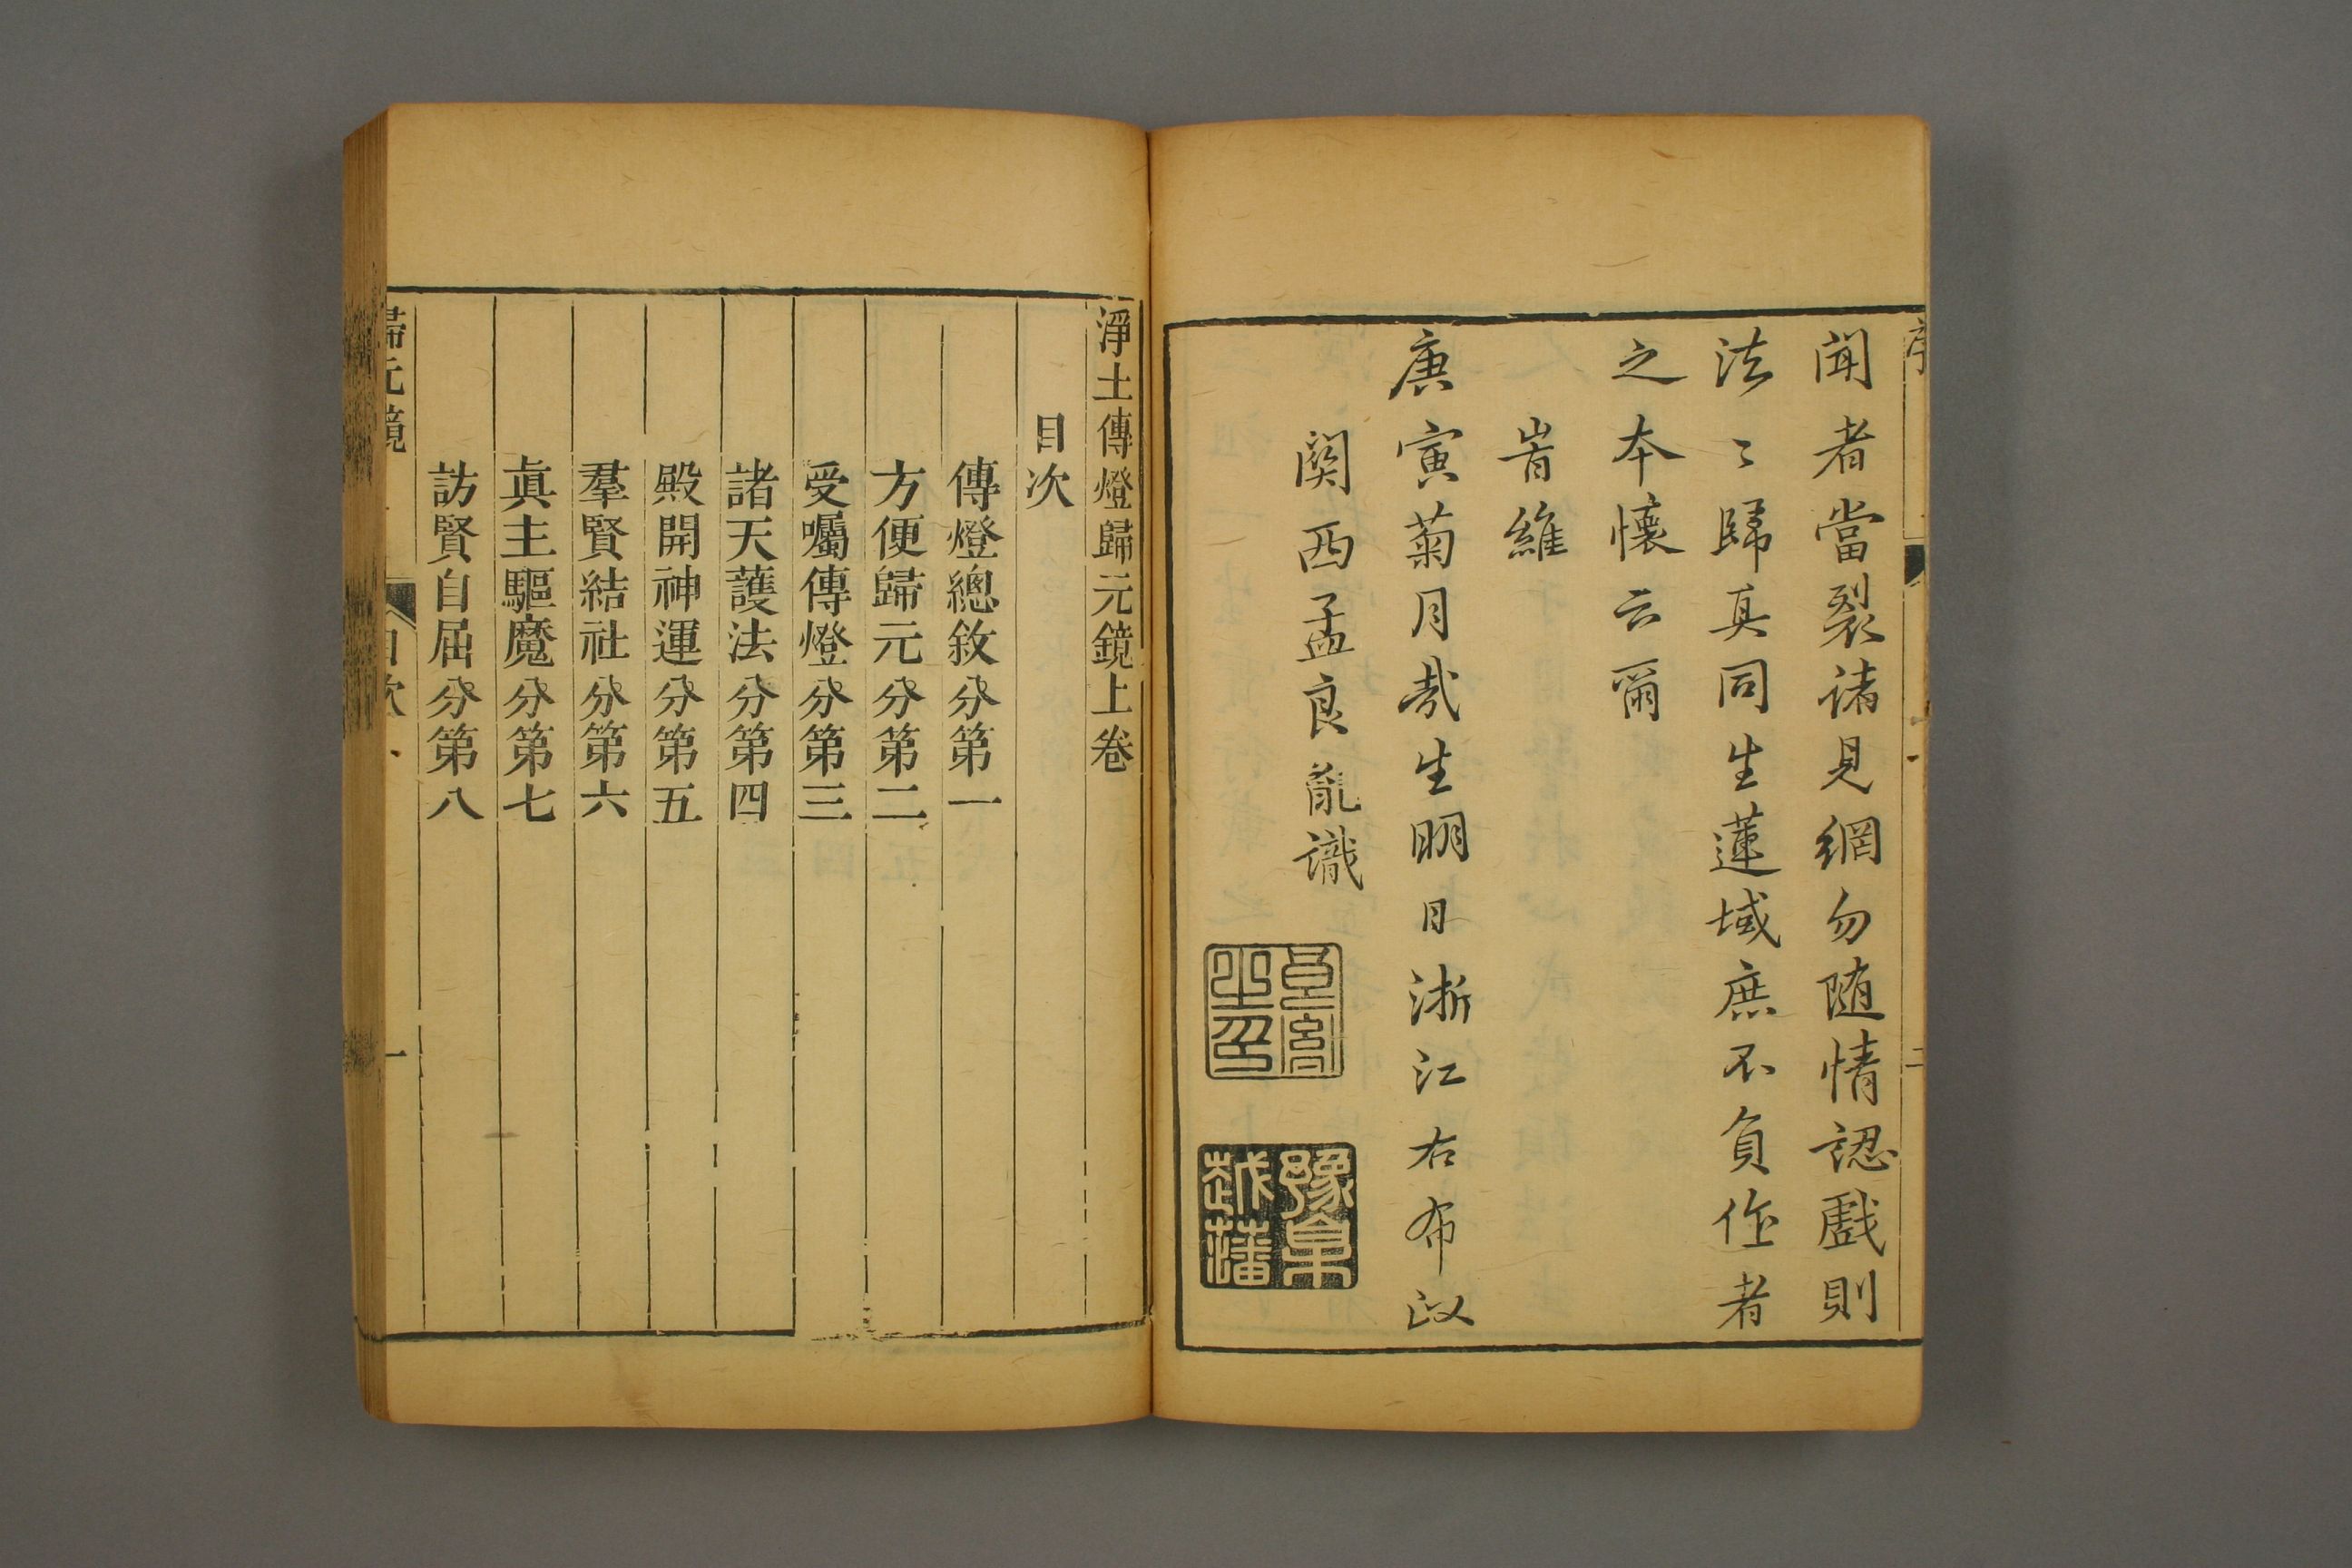 聞者當裂諸見網勿随情認戲則
法〻歸真同生蓮域庶不負作者
之本懷云爾
峕維
庚寅菊月哉生明日浙江右布政
関西孟良胤識
豫臬
越藩
淨土傳燈歸元鏡上卷
目次
傳燈總敘分第一
方便歸元分第二
受囑傳燈分第三
諸天護法分第四
殿開神運分第五
羣賢結社分第六
眞主驅魔分第七
訪賢自屆分第八
歸元鏡
目次
一